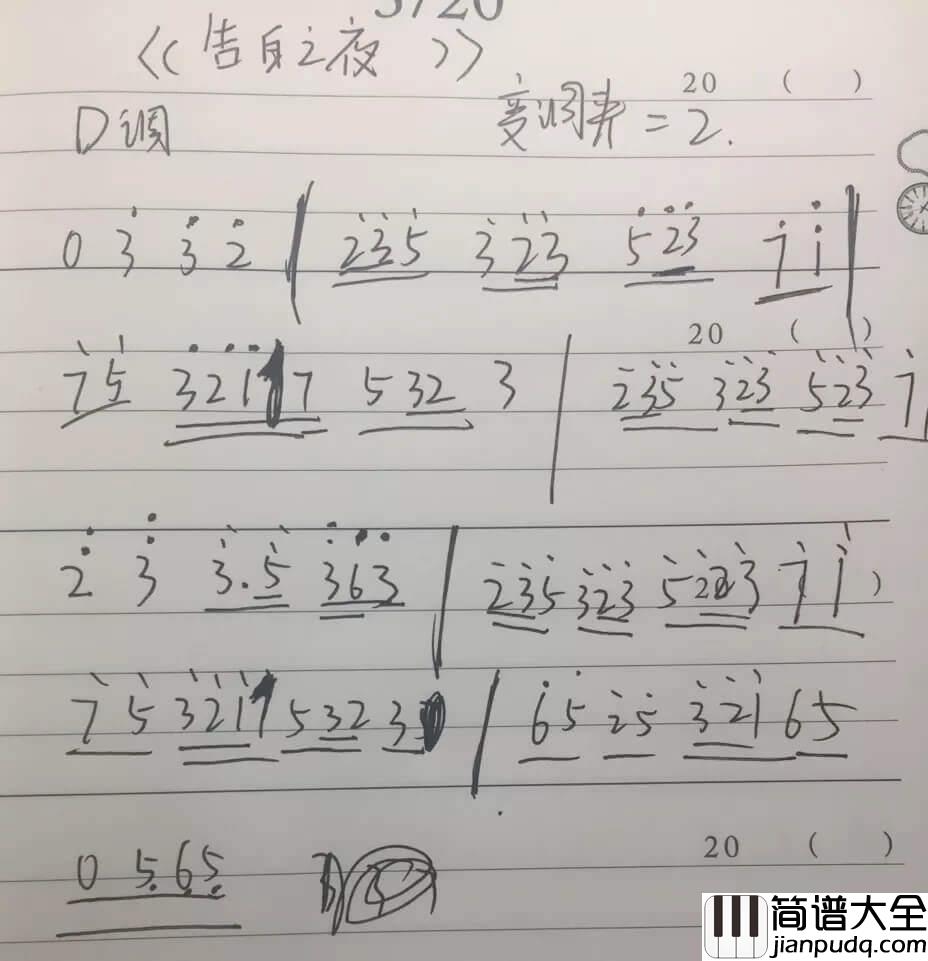 《告白之夜》
20 ( )
D调 变调夹=2.
0 3̇ 3̇ 2̇ | 2̇3̇5̇ 3̇2̇3̇ 5̇2̇3̇ 7̇ i̇ |
20 ( )
7̇5̇ 3̇2̇1̇ 7 532 3 | 2̇3̇5̇ 3̇2̇3̇ 5̇2̇3̇ 7̇
2̇ 3̇ 3̇.5̇ 3̇6̇3̇ | 2̇3̇5̇ 3̇2̇3̇ 5̇2̇3̇ 7̇ 1̇
7̇ 5̇ 3̇2̇1̇ 532 3 | 6̇5̇ 2̇5̇ 3̇2̇1̇ 65
0 5̣6̣5̣
20 ( )
简谱大全
jianpudq.com